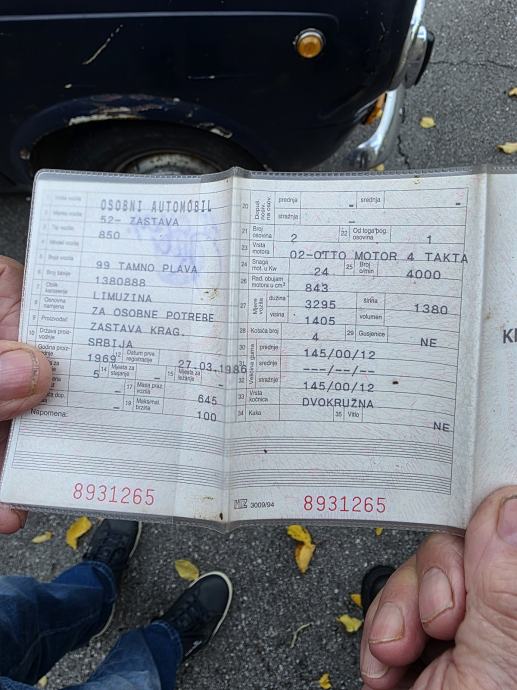 OSOBNI AUTOMOBIL
52- ZASTAVA
850
Boja vozila
99 TAMNO PLAVA
Broj šasije
1380888
Oblik karoserije
LIMUZINA
Osnovna namjena
ZA OSOBNE POTREBE
Proizvođač
ZASTAVA KRAG.
Država proizvodnje
SRBIJA
Godina proizvodnje
1969
12 Datum prve registracije
27.03.1986
5
14 Mjesta za stajanje
-
15 Mjesta za ležanje
-
-
17 Masa praz. vozila
645
-
18 Maksimal. brzina
100
Napomena:
8931265
20 Dopuš. nosiv. na osov.
prednja
-
srednja
-
stražnja
-
21 Broj osovina
2
22 Od toga pog. osovina
1
23 Vrsta motora
02-OTTO MOTOR 4 TAKTA
24 Snaga mot. u Kw
24
25 Broj o/min
4000
26 Rad. obujam motora u cm³
843
27 Mjere vozila
dužina
3295
širina
1380
visina
1405
volumen
28 Kotača broj
4
29 Gusjenice
NE
30
prednje
145/00/12
31
srednje
---/--/--
32
stražnje
145/00/12
33 Vrsta kočnica
DVOKRUŽNA
34 Kuka
35 Vitlo
NE
3009/94
8931265